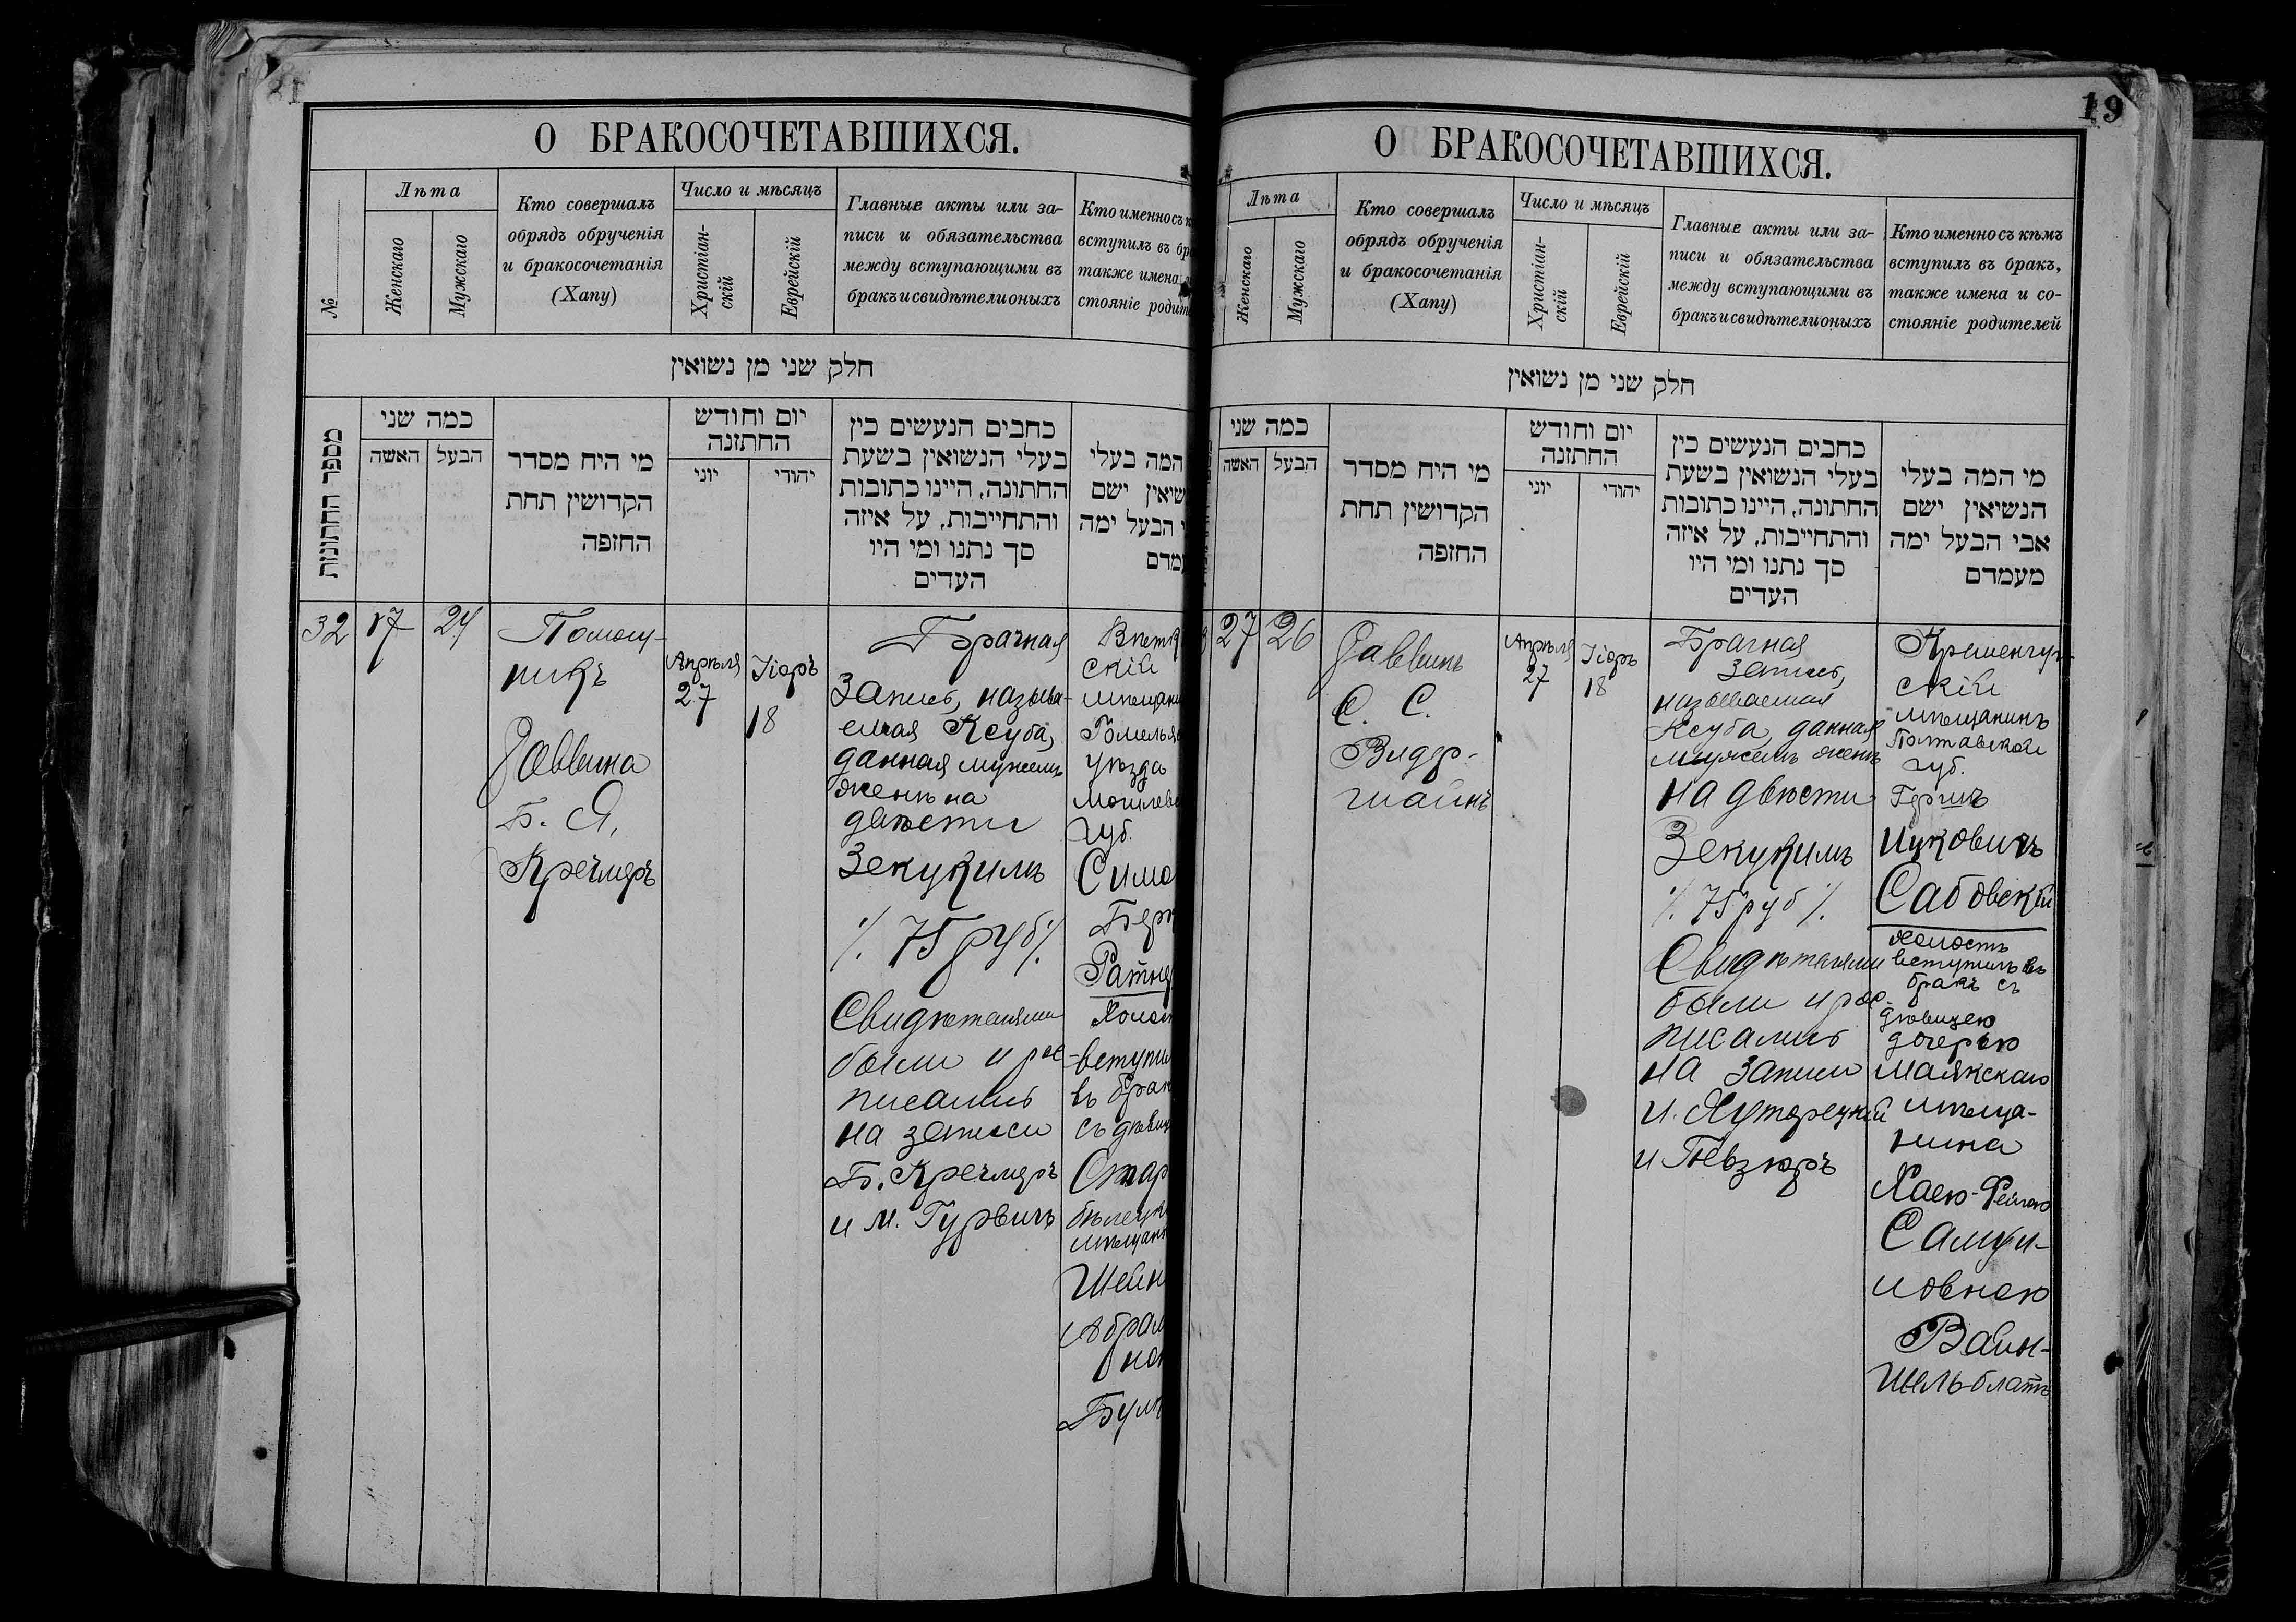 О БРАКОСОЧЕТАВШИХСЯ.
№
Лѣта
Женскаго
Мужскаго
Кто совершалъ
обрядъ обрученія
и бракосочетанія
(Хапу)
Число и мѣсяцъ
Христіан-
скій
Еврейскій
Главные акты или за-
писи и обязательства
между вступающими въ
бракъ и свидѣтели оныхъ
Кто именно съ к
вступилъ въ бр
также имена
стояніе родит
חלק שני מן נשואין
מספר החתונות
כמה שני
האשה
הבעל
מי היח מסדר
הקדושין תחת
החופה
יום וחודש
החתונה
יוני
יהודי
כחבים הנעשים כין
בעלי הנשואין בשעת
החתונה, היינו כתובות
והתחייבות, על איזה
סך נתנו ומי היו
העדים
המה בעלי
שיאין ישם
י הבעל ימה
עמדם
32
17
24
Помощ-
никъ
Раввина
Б. Я.
Кречмеръ
Апрѣля
27
Іюръ
18
Брачная
Запись, называ-
емая Ксуба,
данная мужемъ
женѣ на
двѣсти
Зекукимъ
·/. 75 руб ·/.
Свидѣтелями
были и рос-
писались
на записи
Б. Кречмеръ
и М. Гурвичъ
скій
мѣщани
Гомельск
уѣзда
Могилевс
губ.
Симо
Берк
Ратне
Холост
вступил
въ брак
съ дѣвиц
Стар
бѣлецк
мѣщанк
Шейн
Абрам
ною
О БРАКОСОЧЕТАВШИХСЯ.
19
Лѣта
Женскаго
Мужскаго
Кто совершалъ
обрядъ обрученія
и бракосочетанія
(Хапу)
Число и мѣсяцъ
Христіан-
скій
Еврейскій
Главные акты или за-
писи и обязательства
между вступающими въ
бракъ и свидѣтели оныхъ
Кто именно съ кѣмъ
вступилъ въ бракъ,
также имена и со-
стояніе родителей
חלק שני מן נשואין
כמה שני
האשה
הבעל
מי היח מסדר
הקדושין תחת
החופה
יום וחודש
החתונה
יוני
יהודי
כחבים הנעשים כין
בעלי הנשואין בשעת
החתונה, היינו כתובות
והתחייבות, על איזה
סך נתנו ומי היו
העדים
מי המה בעלי
הנשיאין ישם
אבי הבעל ימה
מעמדם
27
26
Раввинъ
С. С.
Видер-
шайнъ
Апрѣля
27
Іюръ
18
Брачная
Запись,
называемая
Ксуба, данная
мужемъ женѣ
на двѣсти
Зекукимъ
·/. 75 руб ·/.
Свидѣтелями
были и рос-
писались
на записи
И. Хуторецкій
и Певзюръ
Кременчуг-
скій
мѣщанинъ
Полтавской
губ.
Гершъ
Ицковичъ
Сабовскій
Холостъ
вступилъ въ
бракъ съ
дѣвицею
дочерью
Маякскаго
мѣща-
нина
Хаею-Фейгою
Самуи-
ловною
Вайн-
шельблатъ